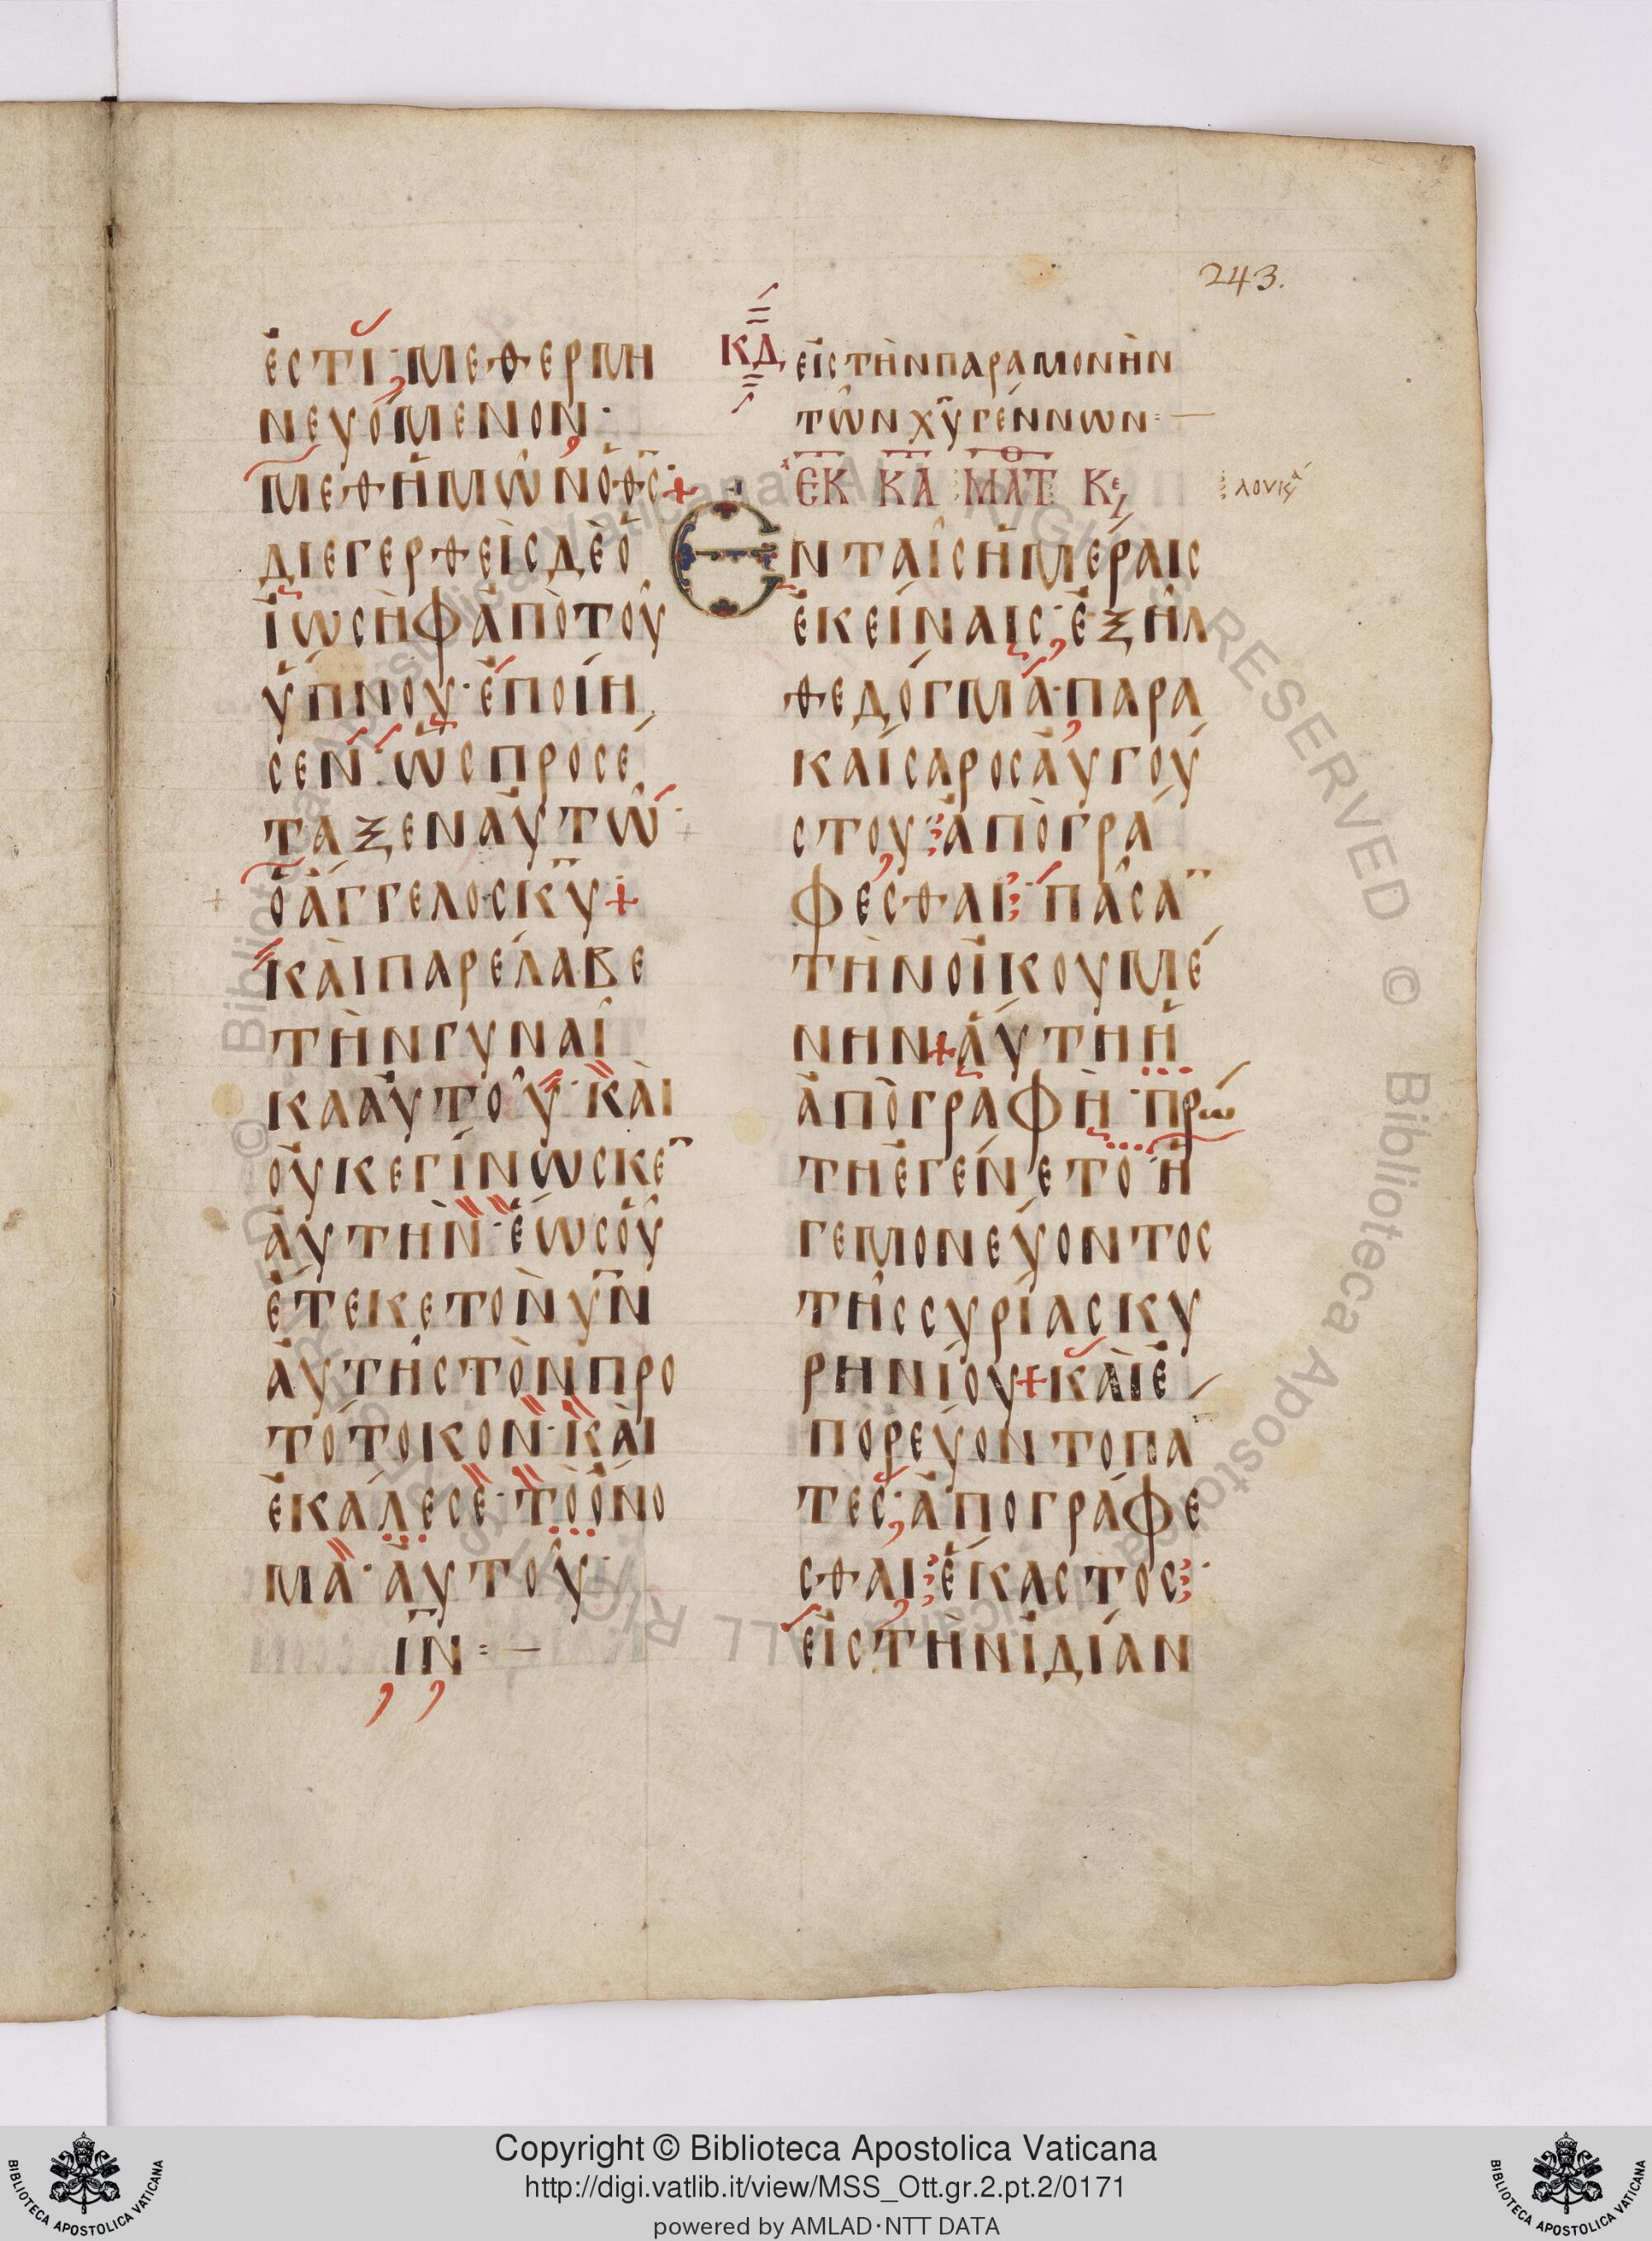 243.
ἐστὶ· μεθερμη
νευόμενον·
μεθ ἡμῶν ὁ θ̅ς̅·+
διεγερθεὶς δὲ ὁ
ἰωσὴφ ἀπὸ τοῦ
ὕπνου· ἐποίη
σεν· ὡς προσέ
ταξεν αὐτῶ·
ὁ ἄγγελος κ̅υ̅+
καὶ παρέλαβε
τὴν γυναῖ
κα αὐτοῦ· καὶ
οὐκ ἐγίνωσκε̅
αὐτὴν· ἕως οὗ
ἔτεκε τὸν υ̅ν̅
αὐτῆς τὸν προ
τότοκον· καὶ
ἐκάλεσε· τὸ ὄνο
μα· αὐτοῦ·
ι̅ν̅ =—
κδ εἰς τὴν παραμονὴν
τῶν χ̅υ̅ γέννων=—
ἐκ κ̅α̅ ματ κε
λουκᾶ
Ἐν ταῖς ἡμέραις
ἐκείναις· ἐξῆλ
θε δόγμα· παρα
καίσαρος αὐγού
στου· ἀπογρά
φεσθαι· πᾶσα̅
τὴν οἰκουμέ
νην+ αὕτη ἡ
ἀπογραφὴ· πρώ
τη ἐγένετο· ἡ
γεμονεύοντος
τῆς συρίας κυ
ρηνίου+ καὶ ἐ
πορεύοντο πά
τες· ἀπογράφε
σθαι· ἕκαστος·
εἰς τὴν ἰδίαν
Copyright © Biblioteca Apostolica Vaticana
http://digi.vatlib.it/view/MSS_Ott.gr.2.pt.2/0171
powered by AMLAD·NTT DATA
BIBLIOTECA APOSTOLICA VATICANA
BIBLIOTECA APOSTOLICA VATICANA